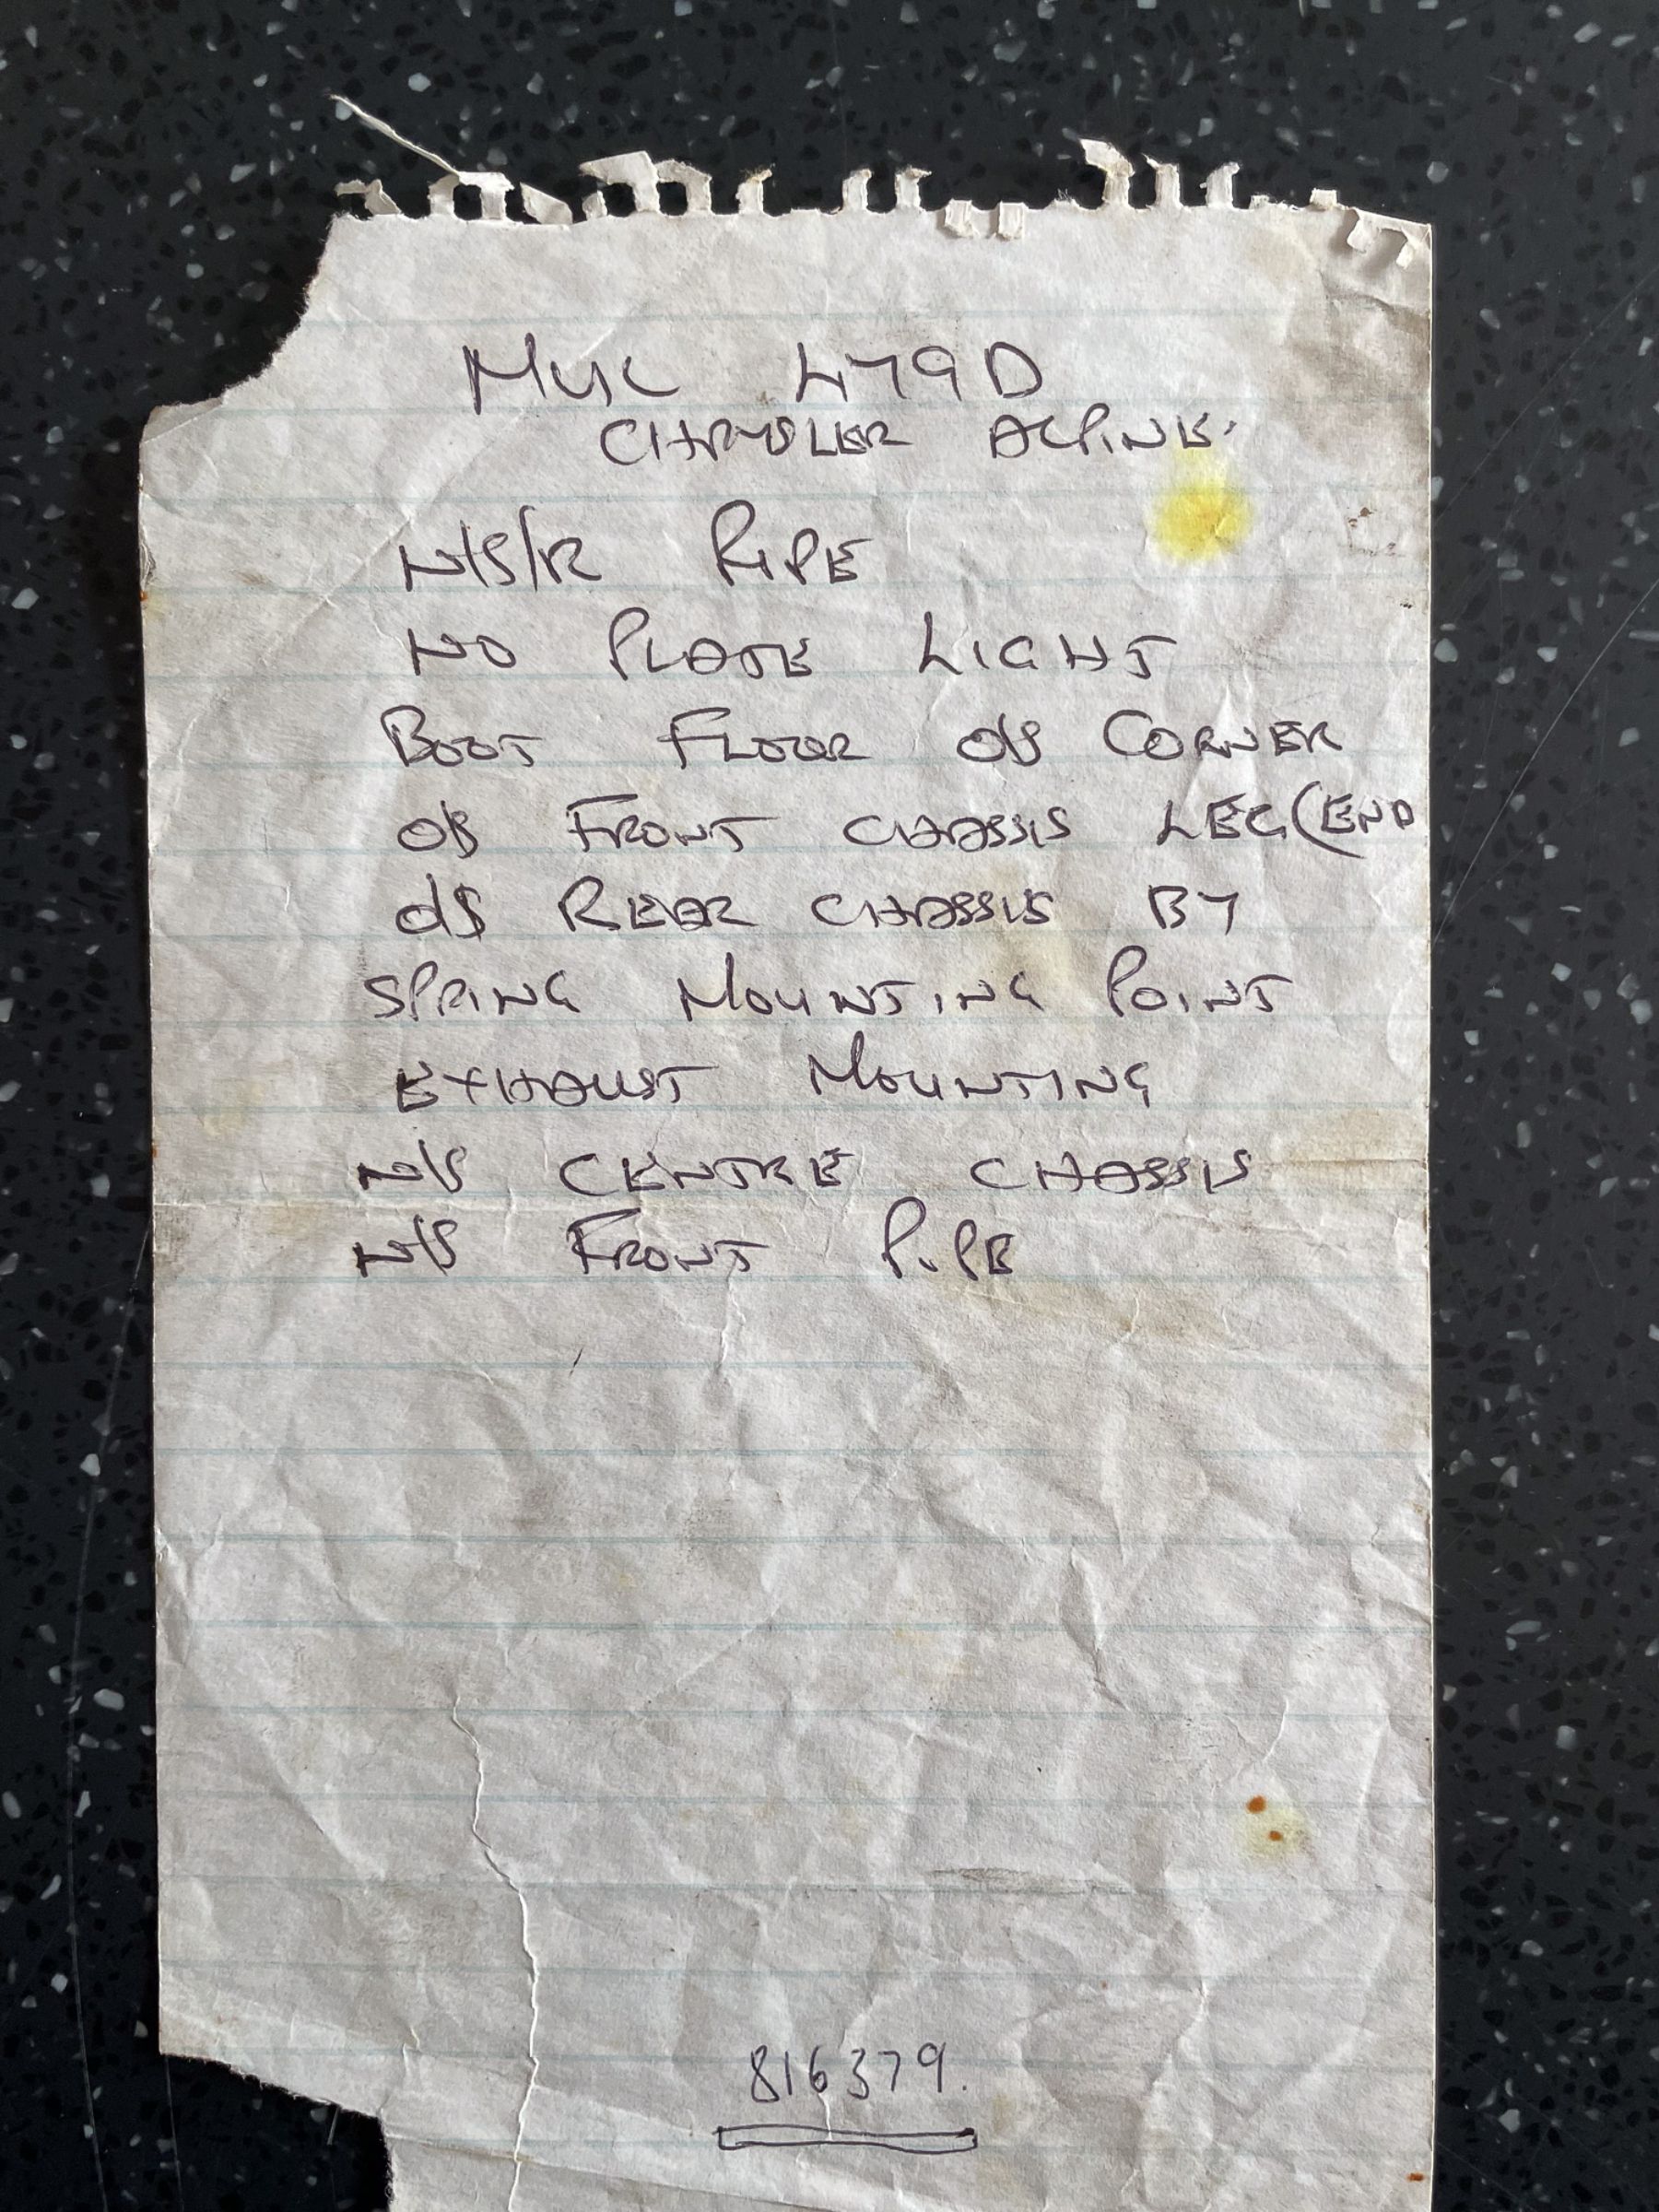 MUC 479D
CHRYSLER ALPINE.
N/S/R PIPE
NO PLATE LIGHT
BOOT FLOOR O/S CORNER
O/S FRONT CHASSIS LEG (END
O/S REAR CHASSIS BY
SPRING MOUNTING POINT
EXHAUST MOUNTING
N/S CENTRE CHASSIS
N/S FRONT PIPE
816379.